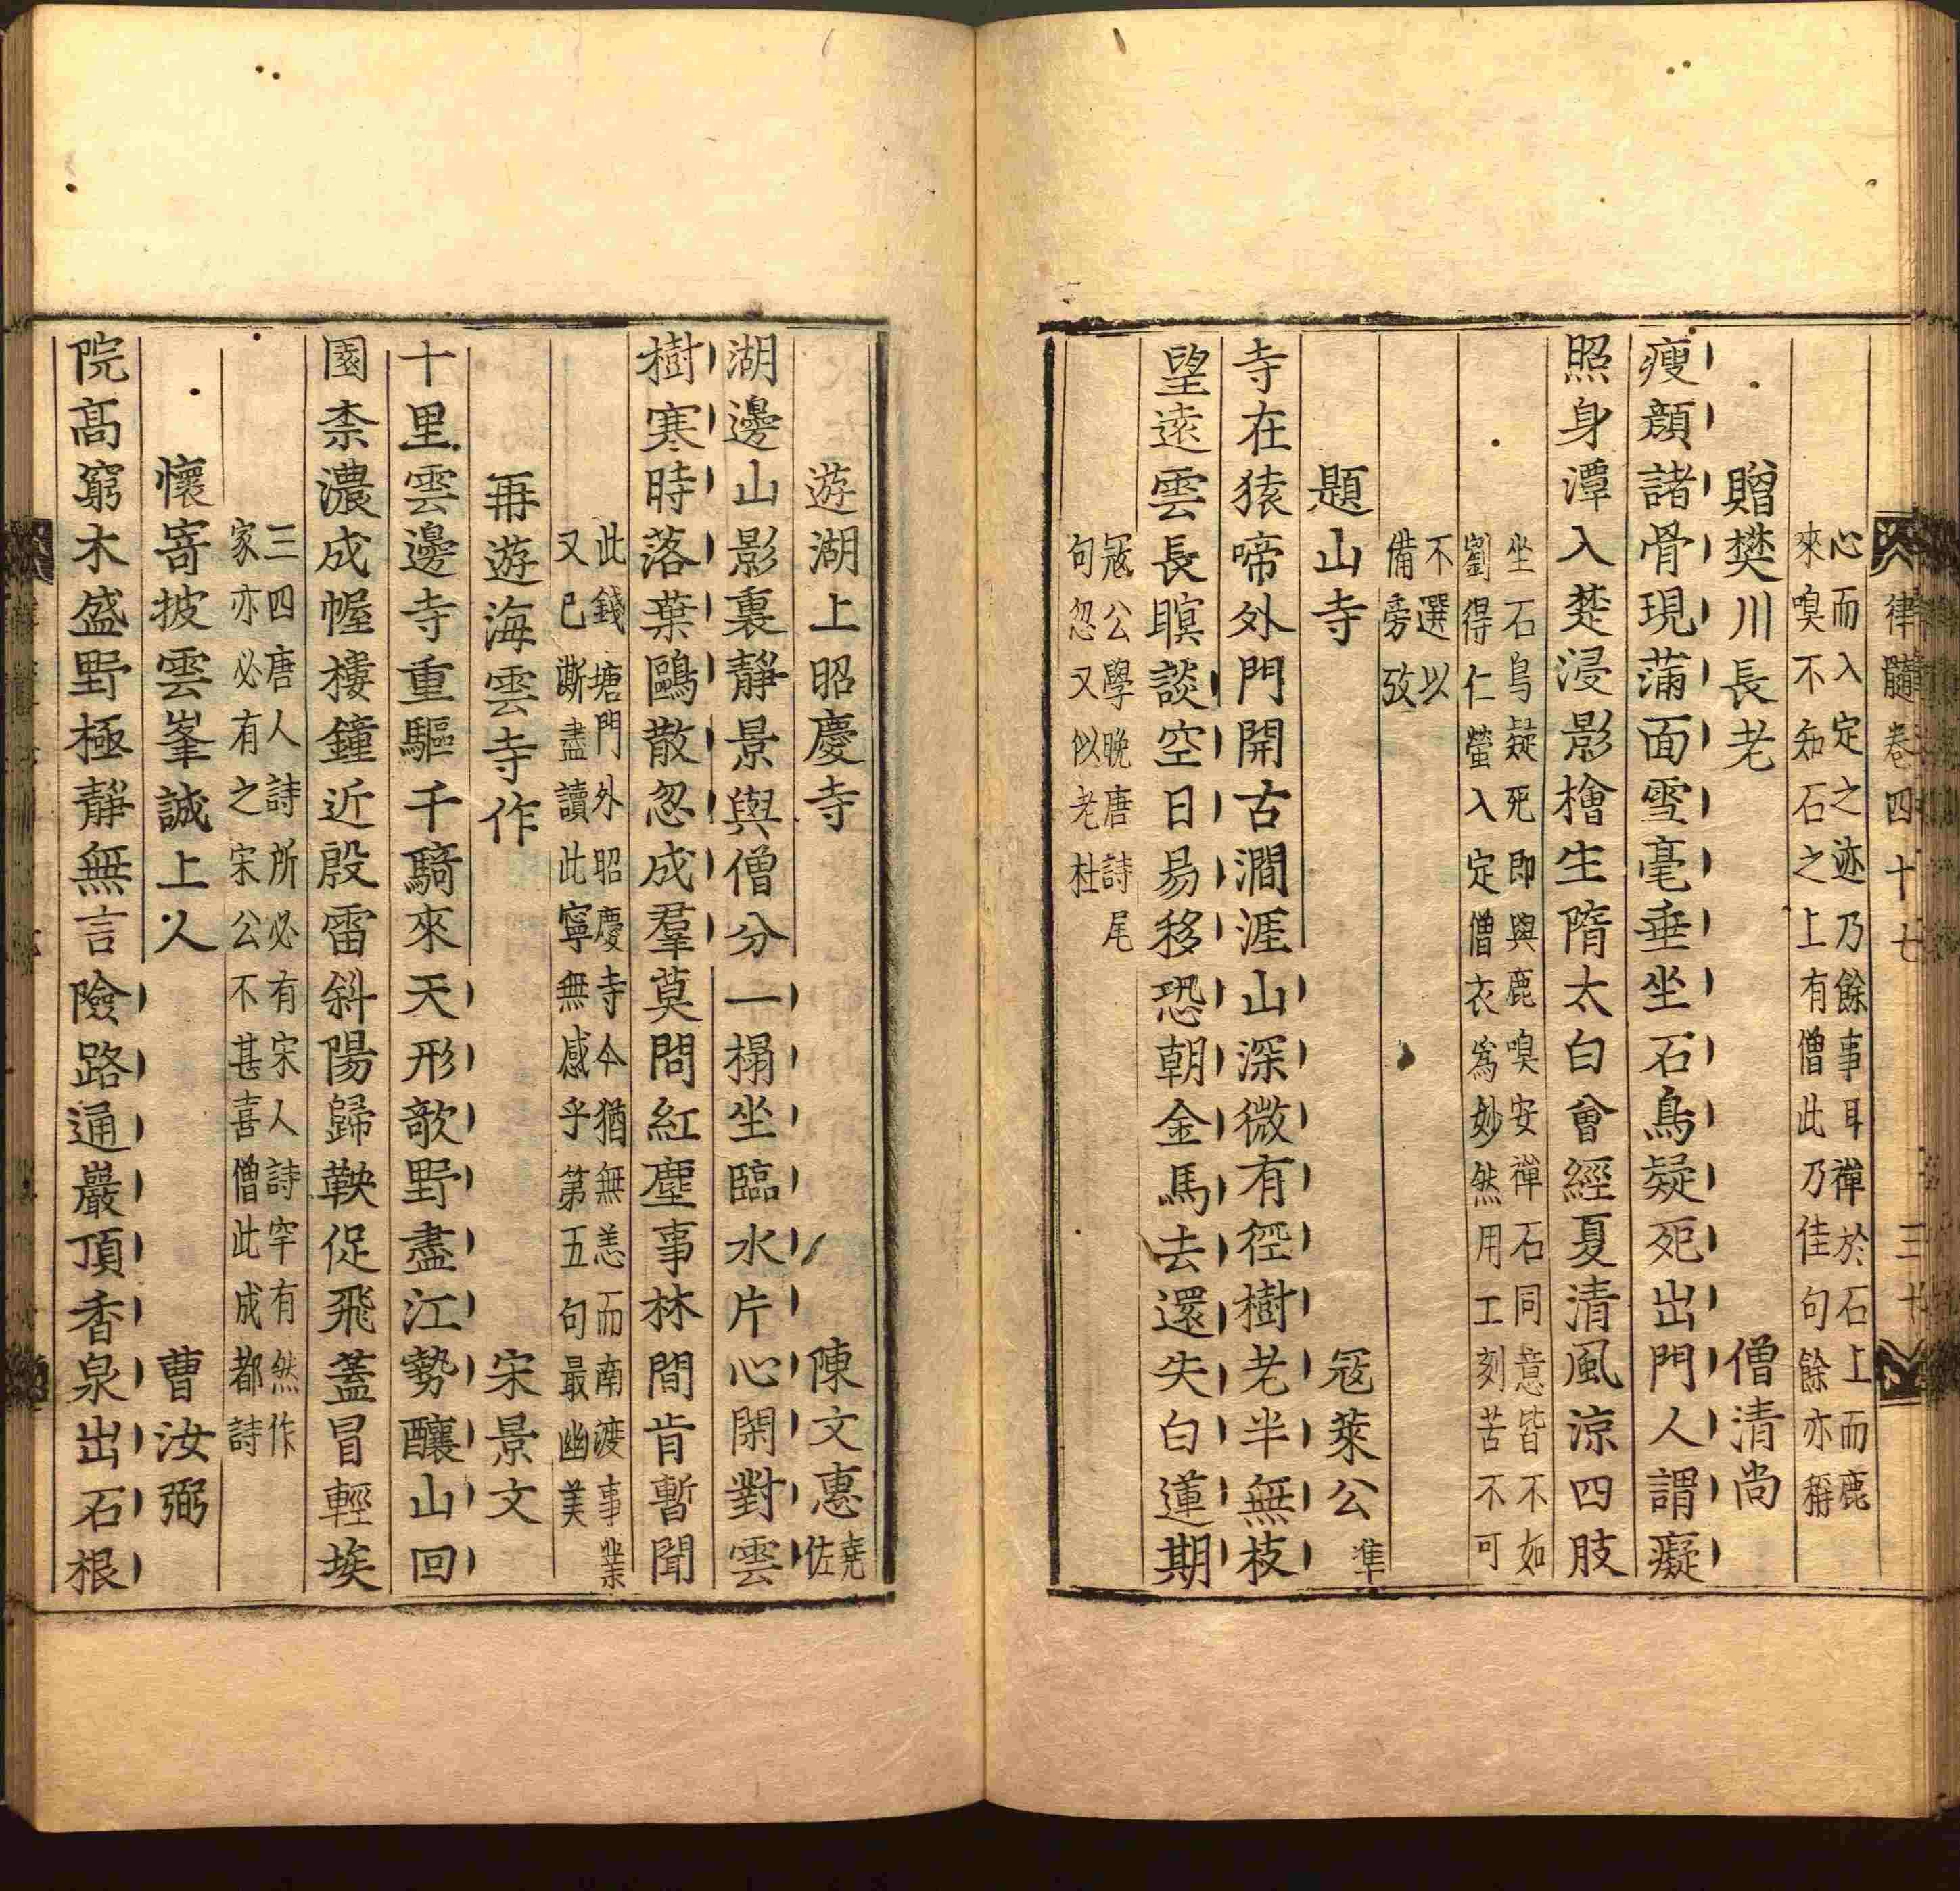 律髓卷四十七 三十
心而入定之迹乃餘事耳禪於石上而鹿
來嗅不知石之上有僧此乃佳句餘亦稱
贈樊川長老 僧清尚
瘦顏諸骨現蒲面雪毫垂坐石鳥疑死出門人謂癡
照身潭入楚浸影檜生隋太白曾經夏清風涼四肢
坐石鳥疑死即與鹿嗅安禪石同意皆不如
劉得仁螢入定僧衣爲妙然用工刻苦不可
不選以
備旁攷
題山寺 冦萊公準
寺在猿啼外門開古澗涯山深微有徑樹老半無枝
望遠雲長瞑談空日易移恐朝金馬去還失白蓮期
冦公學晚唐詩尾
句忽又似老杜
遊湖上昭慶寺 陳文惠堯佐
湖邊山影裏靜景與僧分一榻坐臨水片心閑對雲
樹寒時落葉鷗散忽成羣莫問紅塵事林間肯暫聞
此錢塘門外昭慶寺今猶無恙而南渡事業
又已澌盡讀此寧無感乎第五句最幽美
再遊海雲寺作 宋景文
十里雲邊寺重驅千騎來天形欹野盡江勢釀山回
園柰濃成幄樓鐘近殷雷斜陽歸鞅促飛蓋冒輕埃
三四唐人詩所必有宋人詩罕有然作
家亦必有之宋公不甚喜僧此成都詩
懷寄披雲峯誠上人 曹汝弼
院高窮木盛野極靜無言險路通巖頂香泉出石根